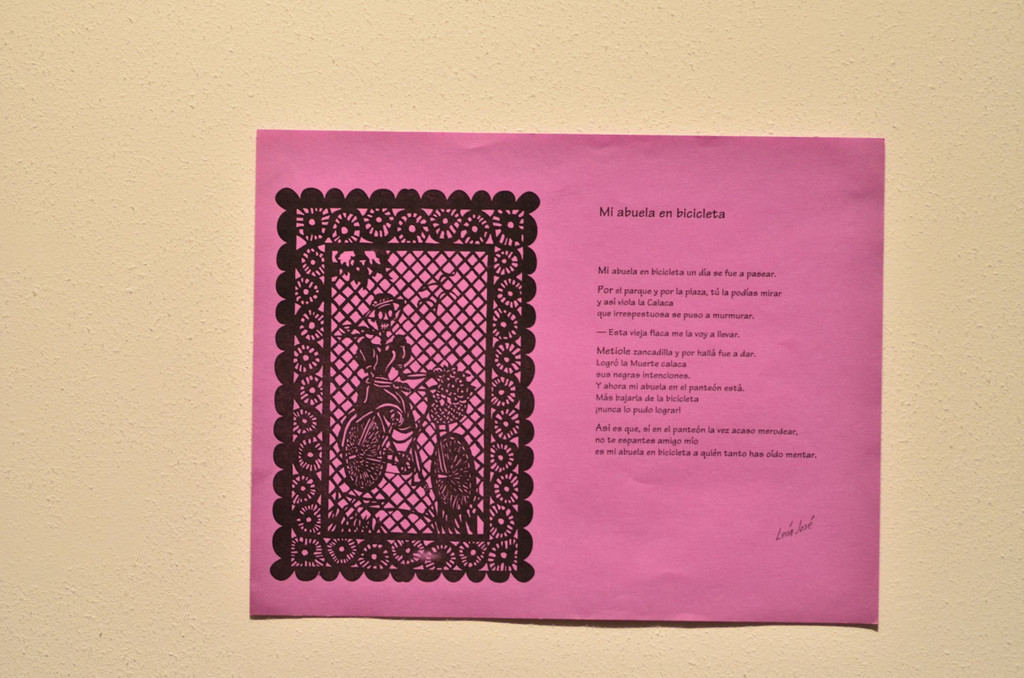 Mi abuela en bicicleta
Mi abuela en bicicleta un día se fue a pasear.
Por el parque y por la plaza, tú la podías mirar
y así viola la Calaca
que irrespestuosa se puso a murmurar.
— Esta vieja flaca me la voy a llevar.
Metiole zancadilla y por hallá fue a dar.
Logró la Muerte calaca
sus negras intenciones.
Y ahora mi abuela en el panteón está.
Más bajarla de la bicicleta
¡nunca lo pudo lograr!
Así es que, si en el panteón la vez acaso merodear,
no te espantes amigo mío
es mi abuela en bicicleta a quién tanto has oído mentar.
León José